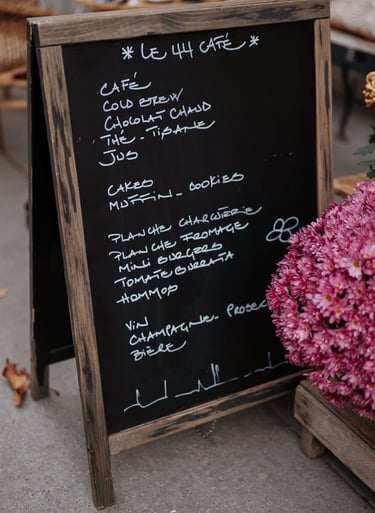 * LE 44 CAFÉ *
CAFÉ
COLD BREW
CHOCOLAT CHAUD
THÉ - TISANE
JUS
CAKES
MUFFIN - COOKIES
PLANCHE CHARCUTERIE
PLANCHE FROMAGE
MINI BURGERS
TOMATE BURRATA
HOMMOS
VIN
CHAMPAGNE - PROSEC
BIÈRE